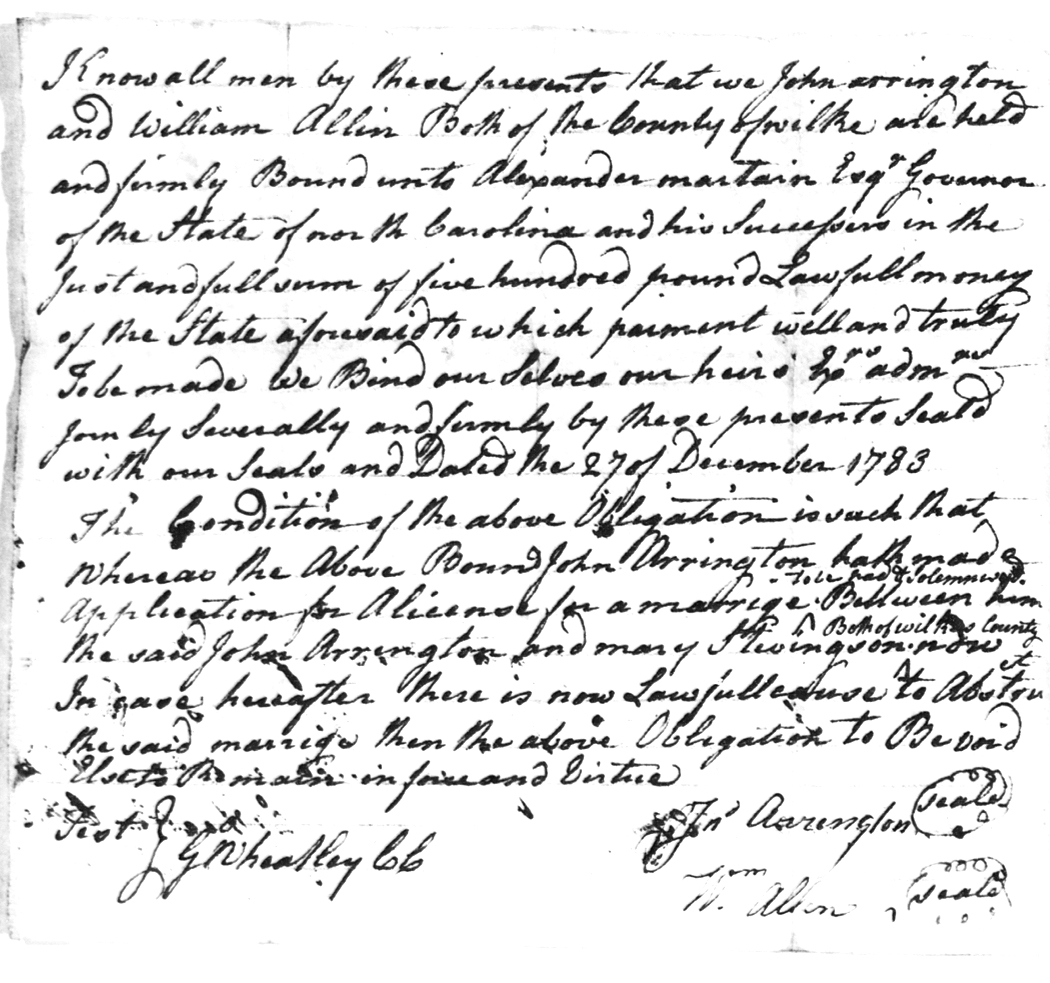 Know all men by these presents that we John arrington
and William Allin Both of the County of wilke are held
and firmly Bound unto Alexander martain Esqr Governor
of the State of north Carolina and his Successers in the
Just and full sum of five hundred pound Lawfull money
of the State aforesaid to which paiment well and truly
To be made We Bind our Selves our heirs Exrs admrs
Joinly Severally and firmly by these presents Seald
with our Seals and Dated the 27 of December 1783
The Condition of the above Obligation is such that
Whereas the Above Bound John Arrington hath made
Application for A license for a marrige Between him
to be had & Solemnized
the said John Arrington and mary Stevingson now
Both of wilkes County
In case hereafter there is now Lawfull cause to Abstru
ct
the said marrige then the above Obligation to Be void
Else to Remain in force and Virtue
Test
G Wheatley CC
Jno Arrington seald
Wm Allen seald